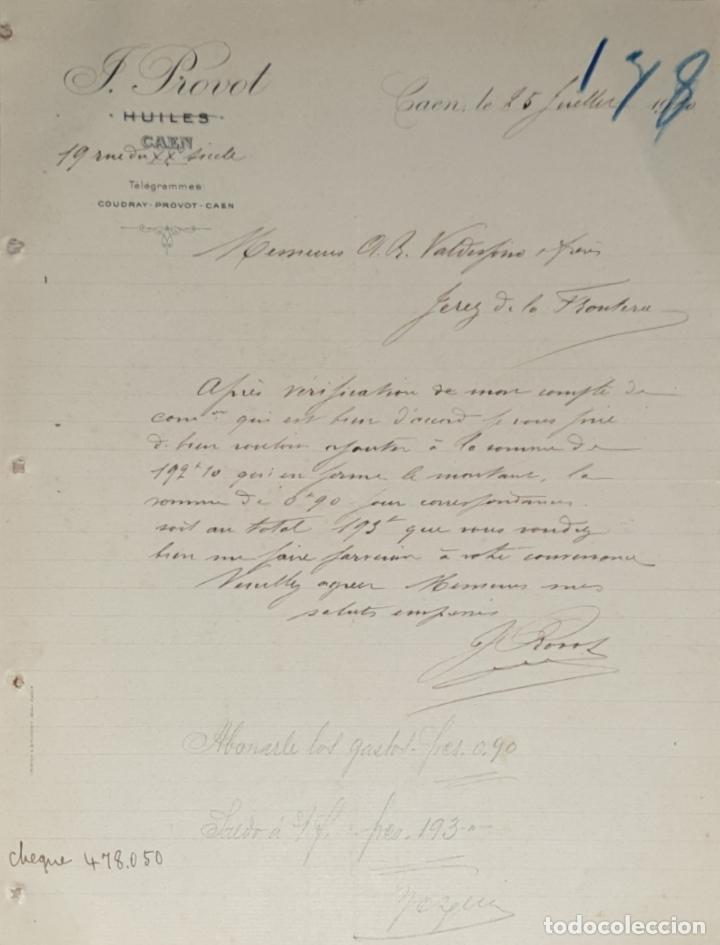 J. Provot
HUILES
CAEN
19 rue du XXe siècle
Télégrammes
COUDRAY-PROVOT-CAEN
178
Caen, le 25 Juillet 19
Messieurs A. R. Valdespino & frères
Jerez de la Frontera
Après vérification de mon compte de
comon qui est bien d'accord je vous prie
de bien vouloir ajouter à la somme de
192f10 qui en forme le montant, la
somme de 0f90 pour correspondances
soit au total 193f que vous voudrez
bien me faire parvenir à votre convenance
Veuillez agréer Messieurs mes
saluts empressés
J. Provot
Abonarle los gastos - fcs. 0.90
Saldo á s/f. fcs. 193-
cheque 478.050
todocoleccion